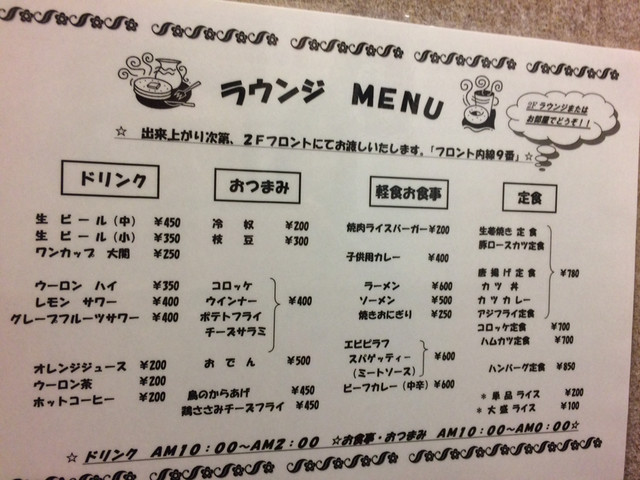 ラウンジ MENU
2Fラウンジまたは
お部屋でどうぞ！！
☆ 出来上がり次第、2Fフロントにてお渡しいたします。「フロント内線9番」☆
ドリンク
生ビール(中) ¥450
生ビール(小) ¥350
ワンカップ 大関 ¥250
ウーロン ハイ ¥350
レモン サワー ¥400
グレープフルーツサワー ¥400
オレンジジュース ¥200
ウーロン茶 ¥200
ホットコーヒー ¥200
おつまみ
冷 奴 ¥200
枝 豆 ¥300
コロッケ
ウインナー ¥400
ポテトフライ
チーズサラミ
おでん ¥500
鳥のからあげ ¥450
鶏ささみチーズフライ ¥450
軽食お食事
焼肉ライスバーガー ¥200
子供用カレー ¥400
ラーメン ¥600
ソーメン ¥500
焼きおにぎり ¥250
エビピラフ
スパゲッティー ¥600
(ミートソース)
ビーフカレー(中辛) ¥600
定食
生姜焼き 定食
豚ロースカツ定食
唐揚げ 定食 ¥780
カツ 丼
カツ カレー
アジフライ定食
コロッケ定食 ¥700
ハムカツ定食 ¥700
ハンバーグ定食 ¥850
* 単品 ライス ¥200
* 大盛 ライス ¥100
☆ ドリンク AM10:00～AM2:00 ☆お食事・おつまみ AM10:00～AM0:00☆